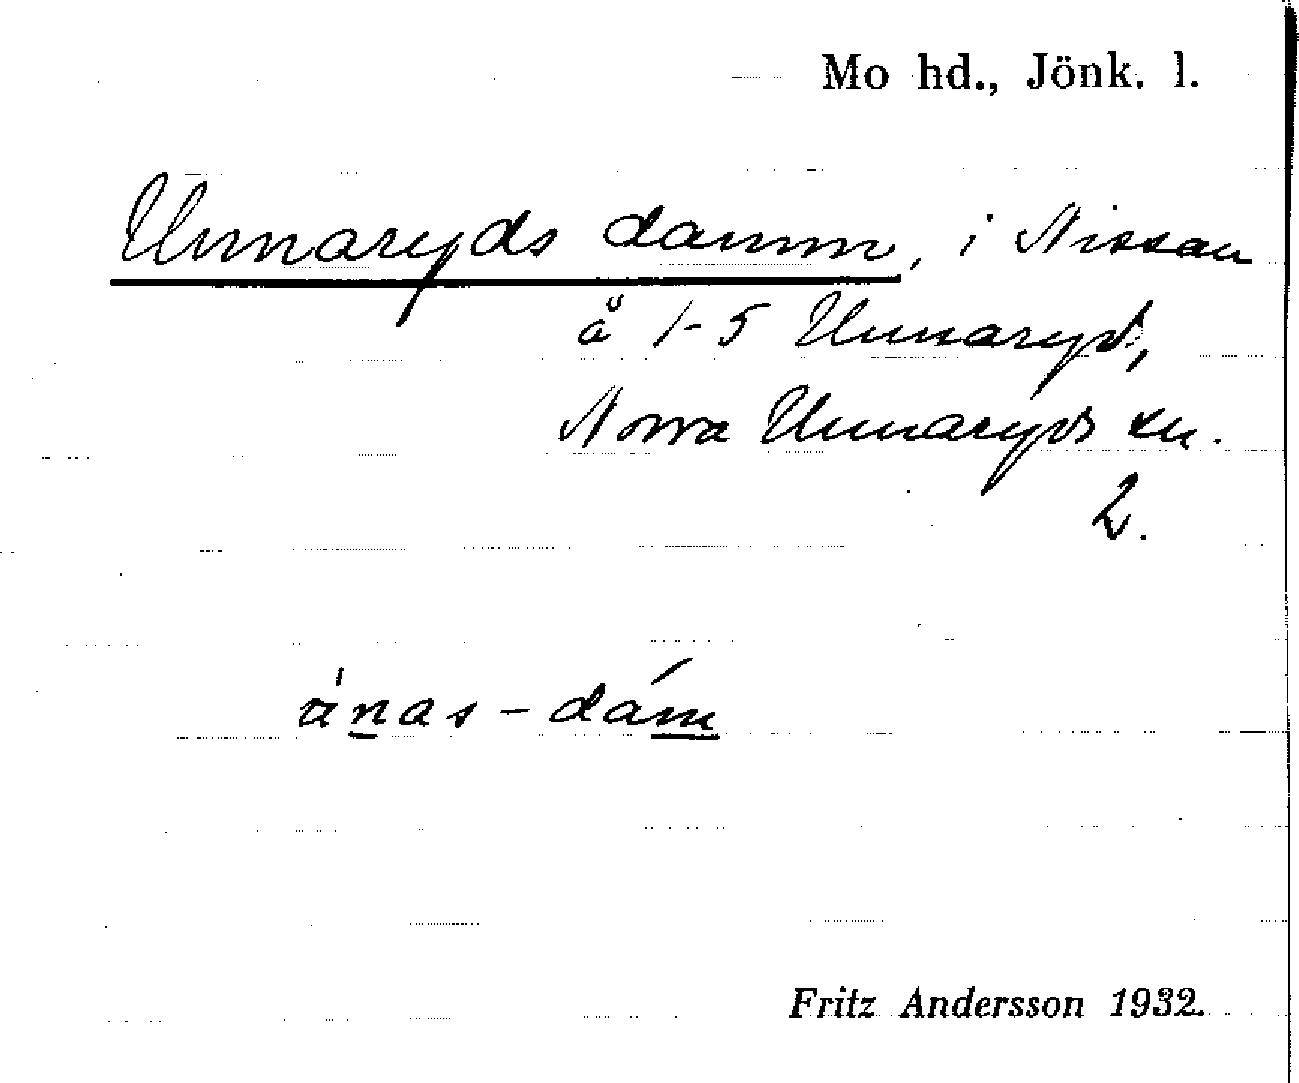 Mo hd., Jönk. l.
Unnaryds damm, i Nissan
å 1-5 Unnaryd,
Norra Unnaryds sn.
2.
únas - dám
Fritz Andersson 1932.